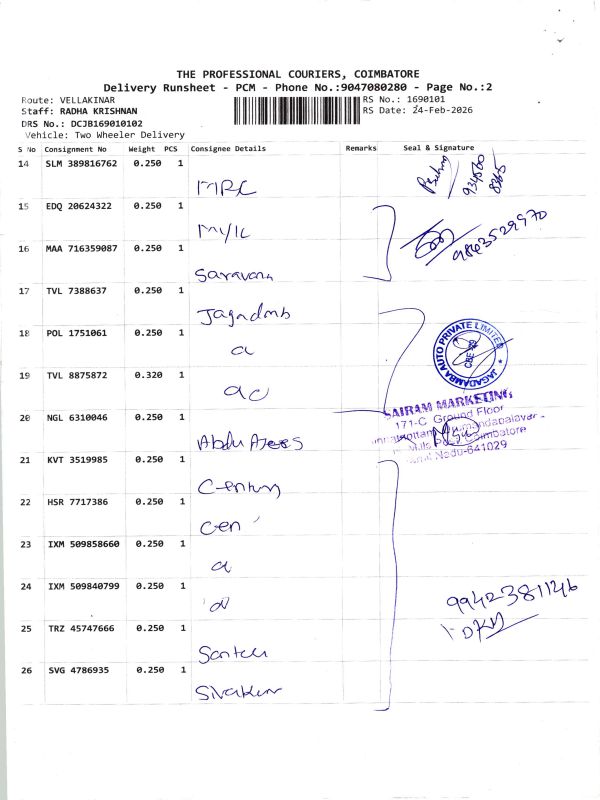 THE PROFESSIONAL COURIERS, COIMBATORE
Delivery Runsheet - PCM - Phone No.:9047080280 - Page No.:2
Route: VELLAKINAR RS No.: 1690101
Staff: RADHA KRISHNAN RS Date: 24-Feb-2026
DRS No.: DCJB169010102
Vehicle: Two Wheeler Delivery
S No Consignment No Weight PCS Consignee Details Remarks Seal & Signature
14 SLM 389816762 0.250 1
MRC
15 EDQ 20624322 0.250 1
9843529970
16 MAA 716359087 0.250 1
Saravana
17 TVL 7388637 0.250 1
Jagadmb
18 POL 1751061 0.250 1
a
JAGADAMBA AUTO PRIVATE LIMITED
CBE-29
19 TVL 8875872 0.320 1
ac
SAIRAM MARKETING
171-C, Ground Floor
20 NGL 6310046 0.250 1
Abdu Azees
Coimbatore
Nadu-641029
21 KVT 3519985 0.250 1
Century
22 HSR 7717386 0.250 1
Cen
23 IXM 509858660 0.250 1
a
24 IXM 509840799 0.250 1
a
9942381146
25 TRZ 45747666 0.250 1
26 SVG 4786935 0.250 1
Sivakum